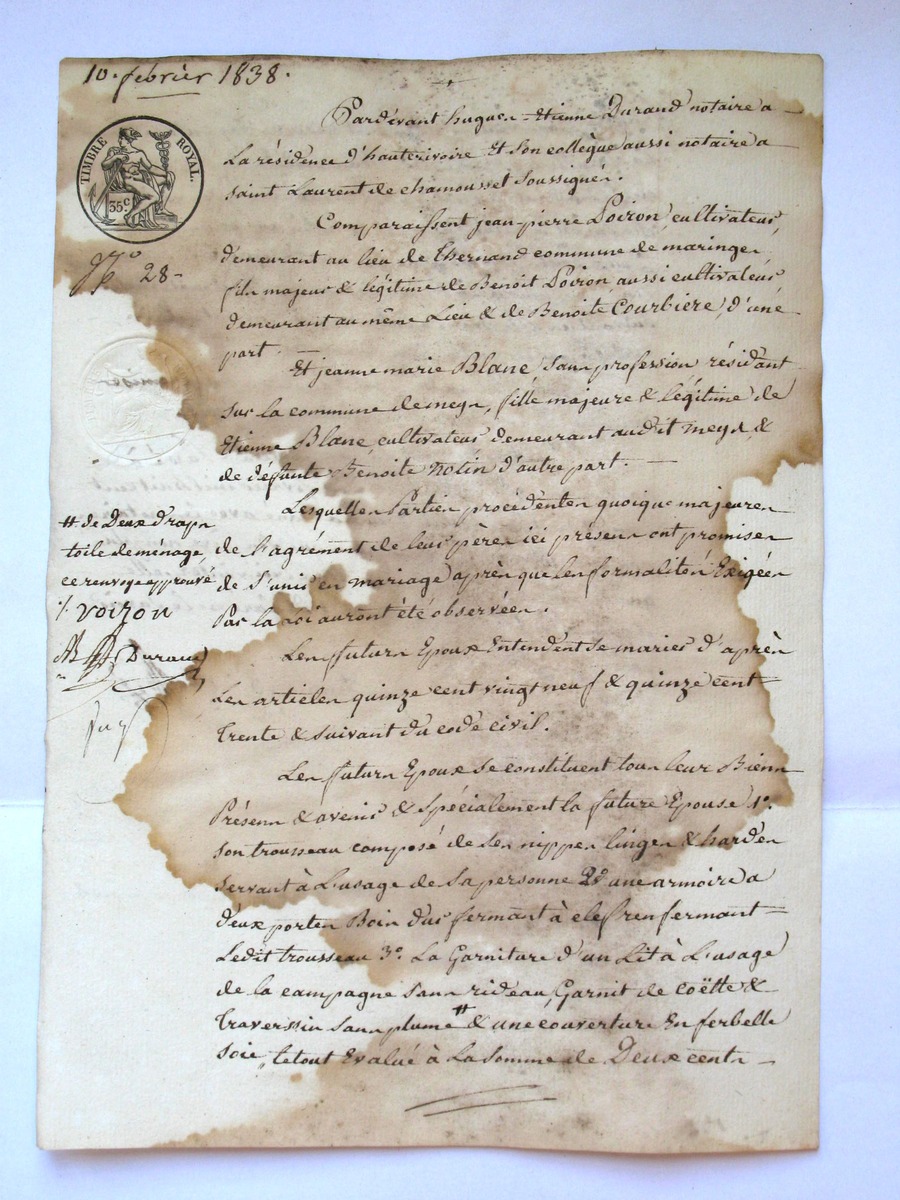 10. février 1838.
TIMBRE ROYAL.
35 c
N° 28-
Pardevant hugues-Etienne Durand notaire a
La résidence d'hauterivoire Et son collègue aussi notaire a
saint Laurent de chamousset soussignés.
Comparaissent jean pierre Poiron, cultivateur,
demeurant au lieu de Thernand commune de maringes
fils majeur & légitime de Benoit Poiron aussi cultivateur
demeurant au même Lieu & de Benoite Courbiere, d'une
part.
Et jeanne marie Blanc, sans profession résidant
sur la commune de meys, fille majeure & légitime de
Etienne Blanc, cultivateur demeurant audit meys, &
de défunte Benoite notin d'autre part.
Lesquelles Parties procédentes quoique majeures
de l'agrément de leurs pères ici présens ont promis
de s'unir en mariage, après que les formalités Exigées
Par la Loi auront été observées.
Les futurs Epoux Entendent se marier d'après
Les articles quinze cent vingt neuf & quinze cent
trente & suivant du code civil.
Les futurs Epoux se constituent tous leurs Biens
Présens & avenir & spécialement la future Epouse 1°.
son trousseau composé de ses nippes linges & hardes
servant à L'usage de sa personne 2° une armoire a
deux portes Bois dur fermant à clef renfermant
Ledit trousseau 3°. La Garniture d'un Lit à L'usage
de la campagne sans rideau, Garnit de coëtte &
traversin sans plume # & une couverture En ferbelle
soie, le tout Evalué à La somme de Deux cents
# de Deux draps
toile de ménage,
ce renvoye approuvé
voizon
Durand